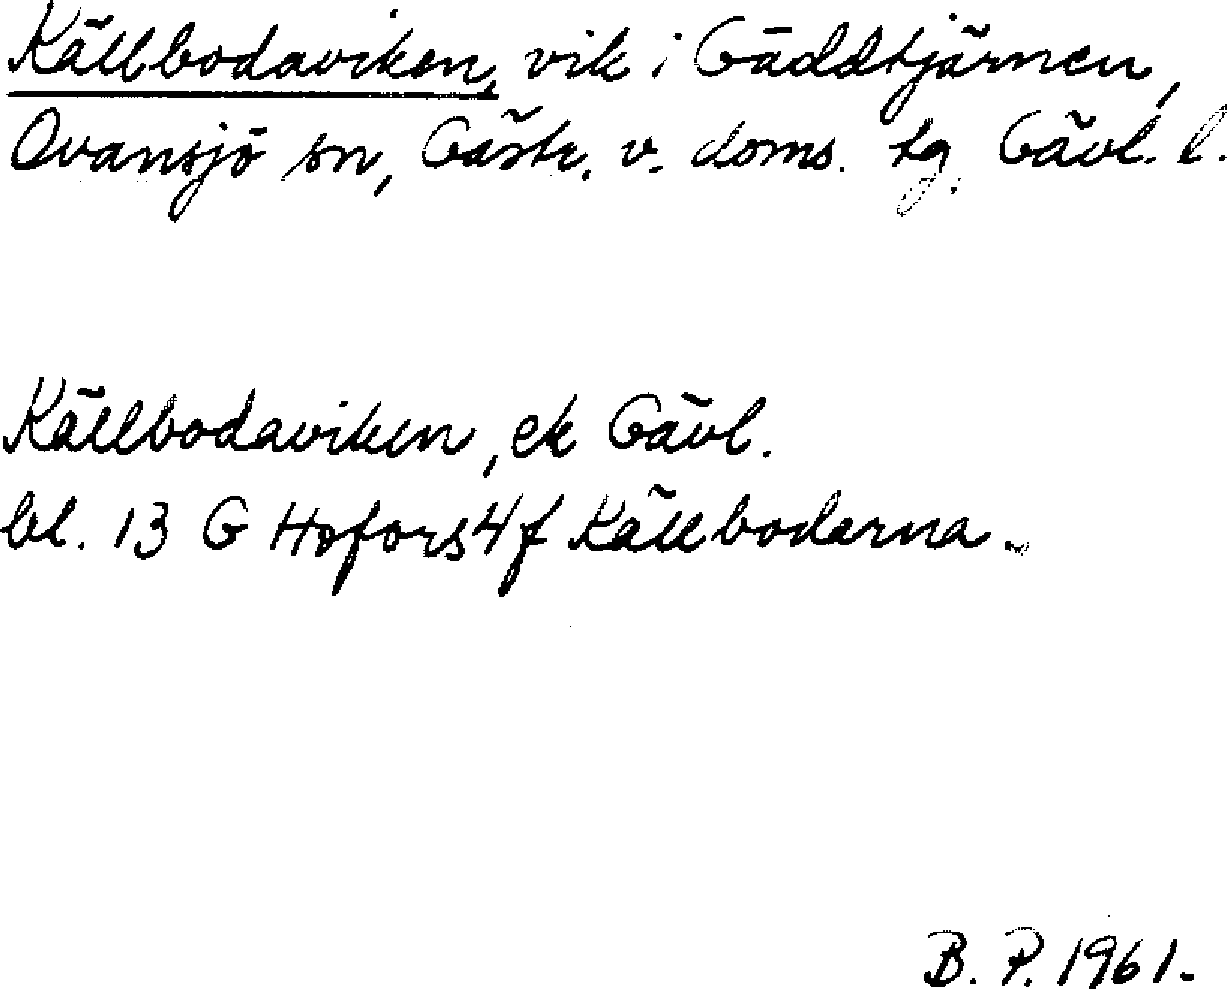 Källbodaviken, vik i Gäddtjärnen,
Ovansjö sn, Gästr. v. doms. tg. Gävl. l.
Källbodaviken, ek Gävl.
bl. 13 G Hofors 4 f Källboderna.
B. P. 1961.